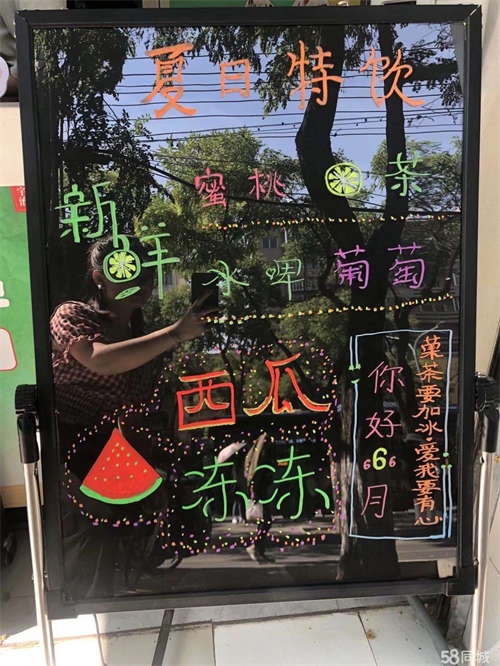 夏日特饮
蜜桃 茶
新鲜
冰啤 葡萄
西瓜
冻冻
你好666月
菓茶要加冰·爱我要有心
58同城